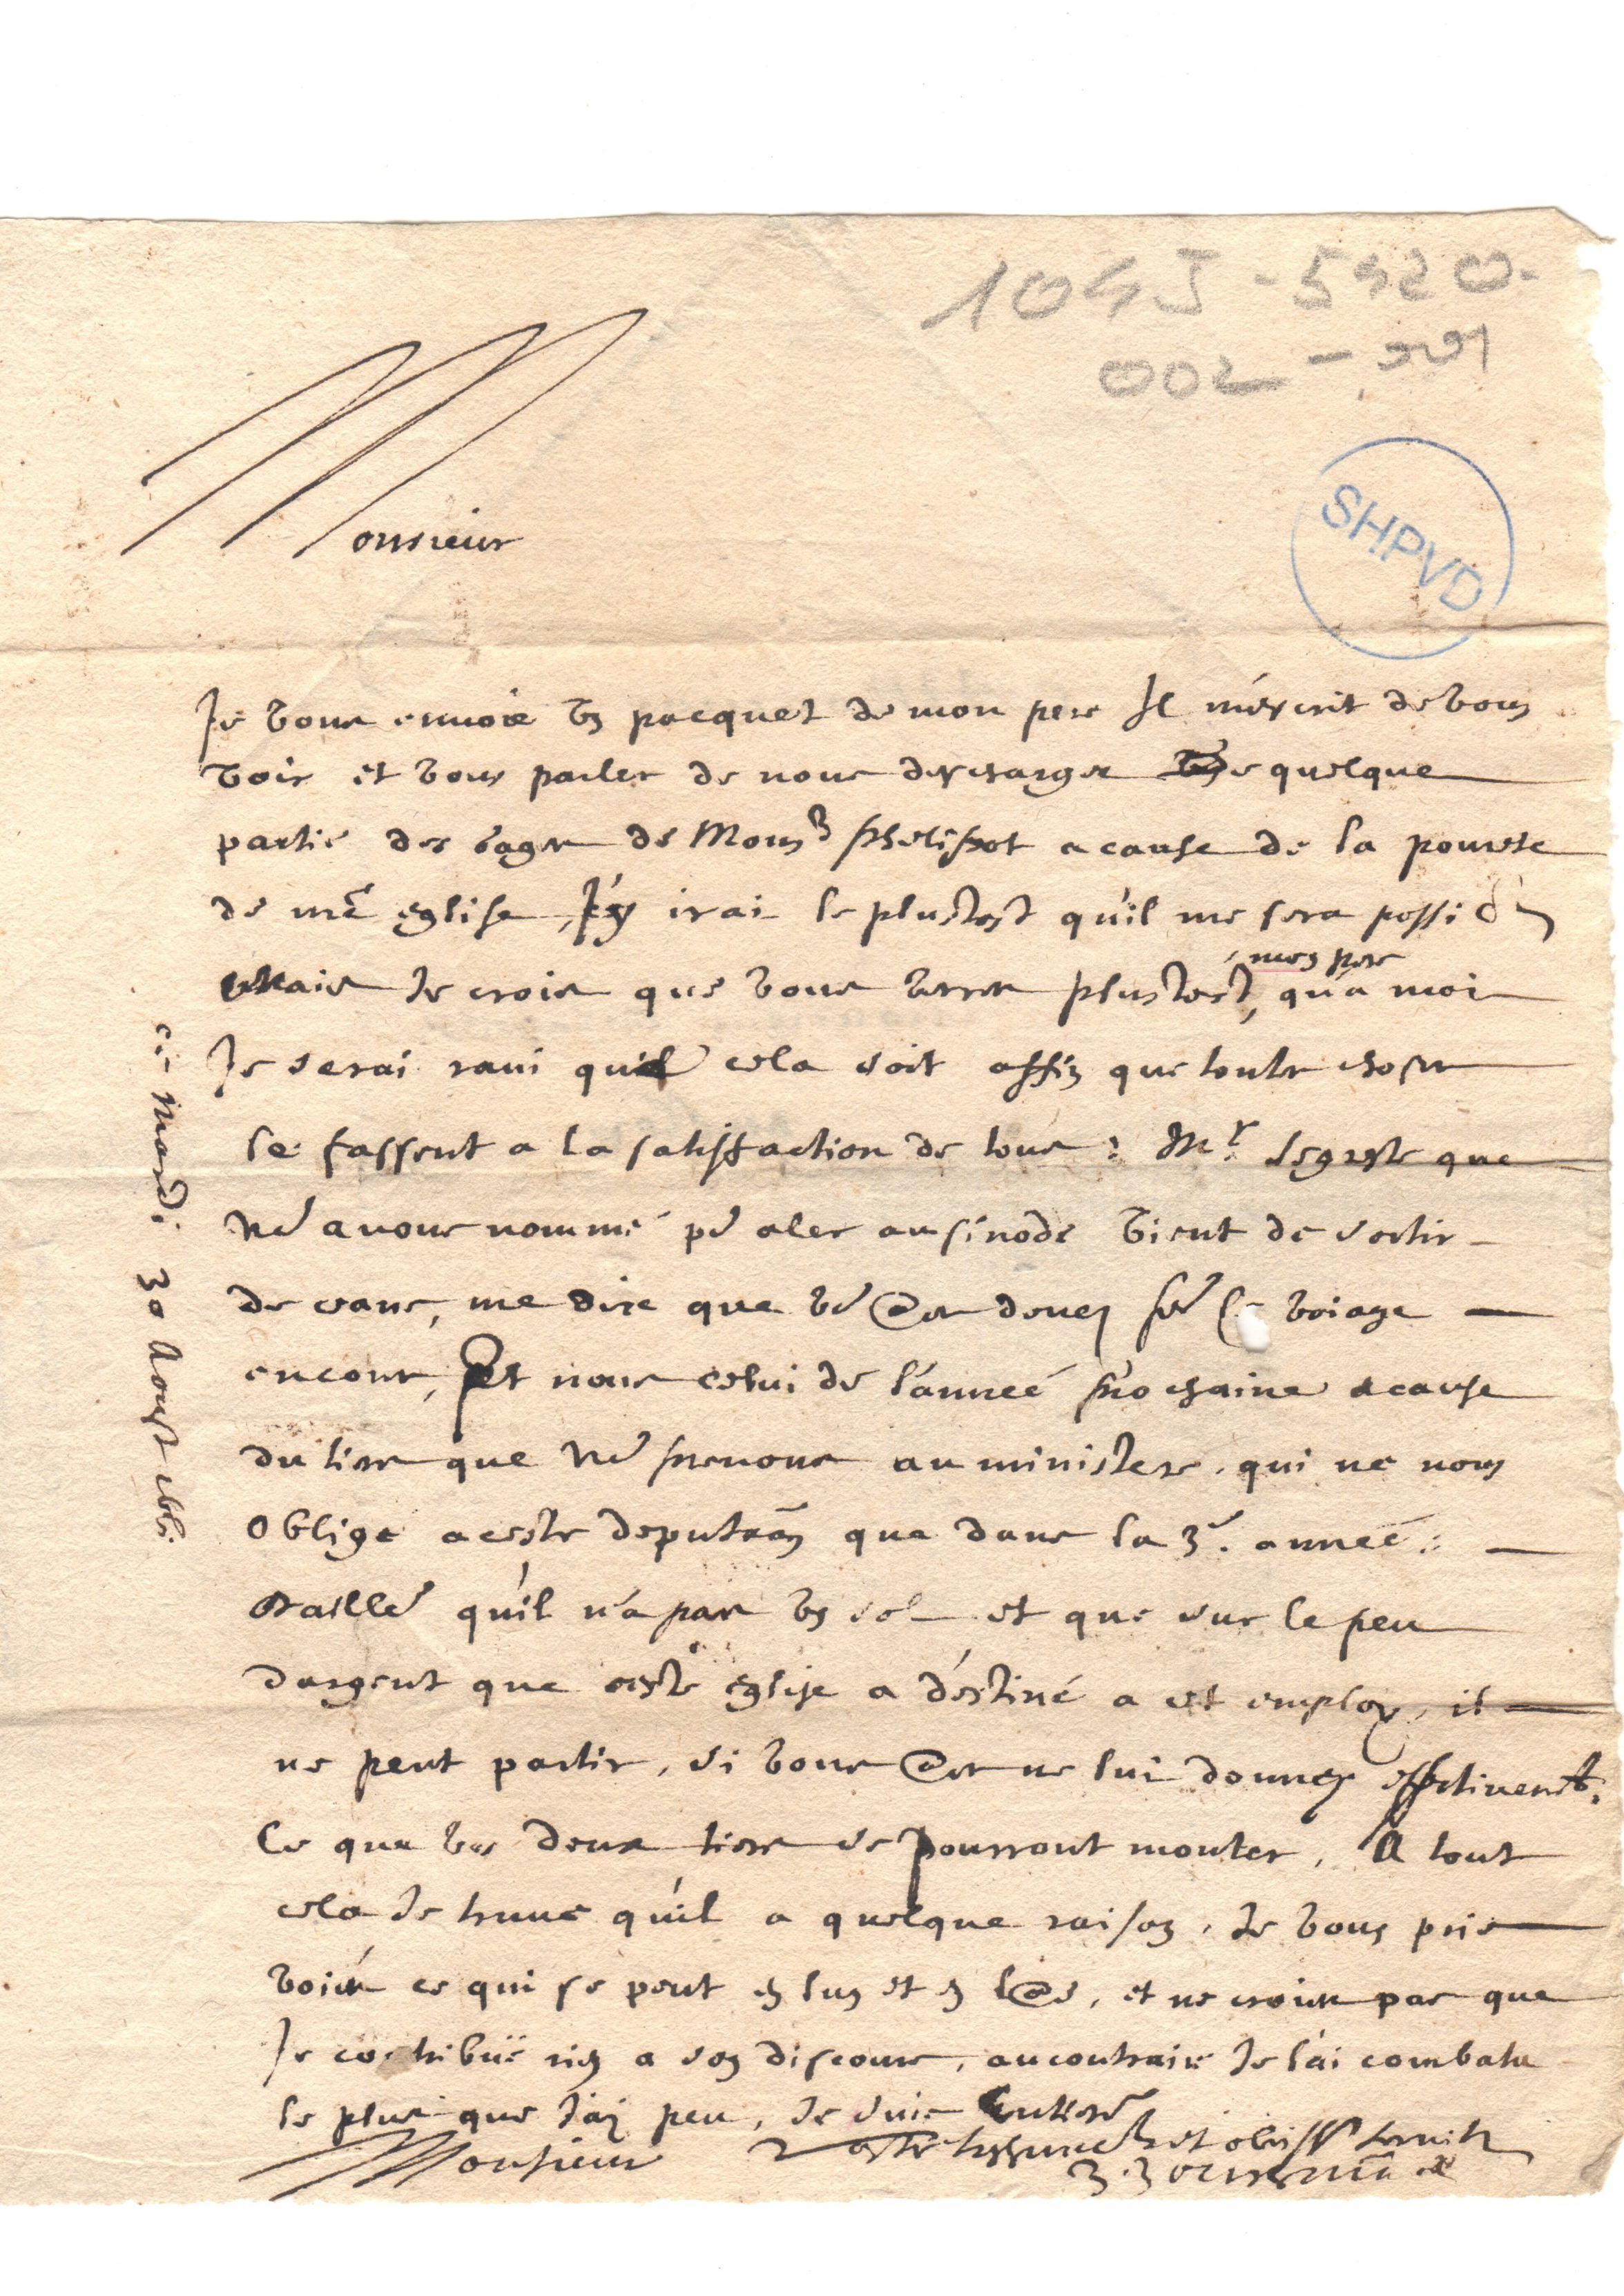 104J-5920-
002 -
SHPVD
Monsieur
Je vous envoie un pacquet de mon pere Il m'éscrit de vous
voir et vous parler de nous descharger de quelque
partie des gages de Monsr Phelipot a cause de la pouvrté
de nre eglise, J'ey irai le plustost qu'il me sera possi
Mais Je crois que vous verres plustost, mon pere qu'a moi
Je serai ravi que cela soit affin que toutes choses
se fassent a la satisffaction de tous : Mr. que
ns avons nommé pr aler au sinode vient de sortir
de ceans, me dire que vs aes deuez fre le voiage
encore, Et nous celui de l'anneé prochaine a cause
du tiers que ns prenons au ministere, qui ne nous
oblige a ceste deputaon que dans la 3e. anneé :
D'ailleurs qu'il n'a pas un sol et que sur le peu
d'argent que ceste eglise a déstiné a cet employ, il
ne peut partir, si vous aes ne lui donnez effectivement.
Ce que vos deux tiers se pourront monter, A tout
cela Je treuve qu'il a quelque raison, Je vous prie
voies ce qui se peut en l'un et en l'@e, et ne croies pas que
Je contribuë rien a son discours, au contraire Je l'ai combatu
le plus que J'ai peu, Je suis
Monsieur Vostre treshumble et obeisst servitr
ce mardi 30 Aoust 1661